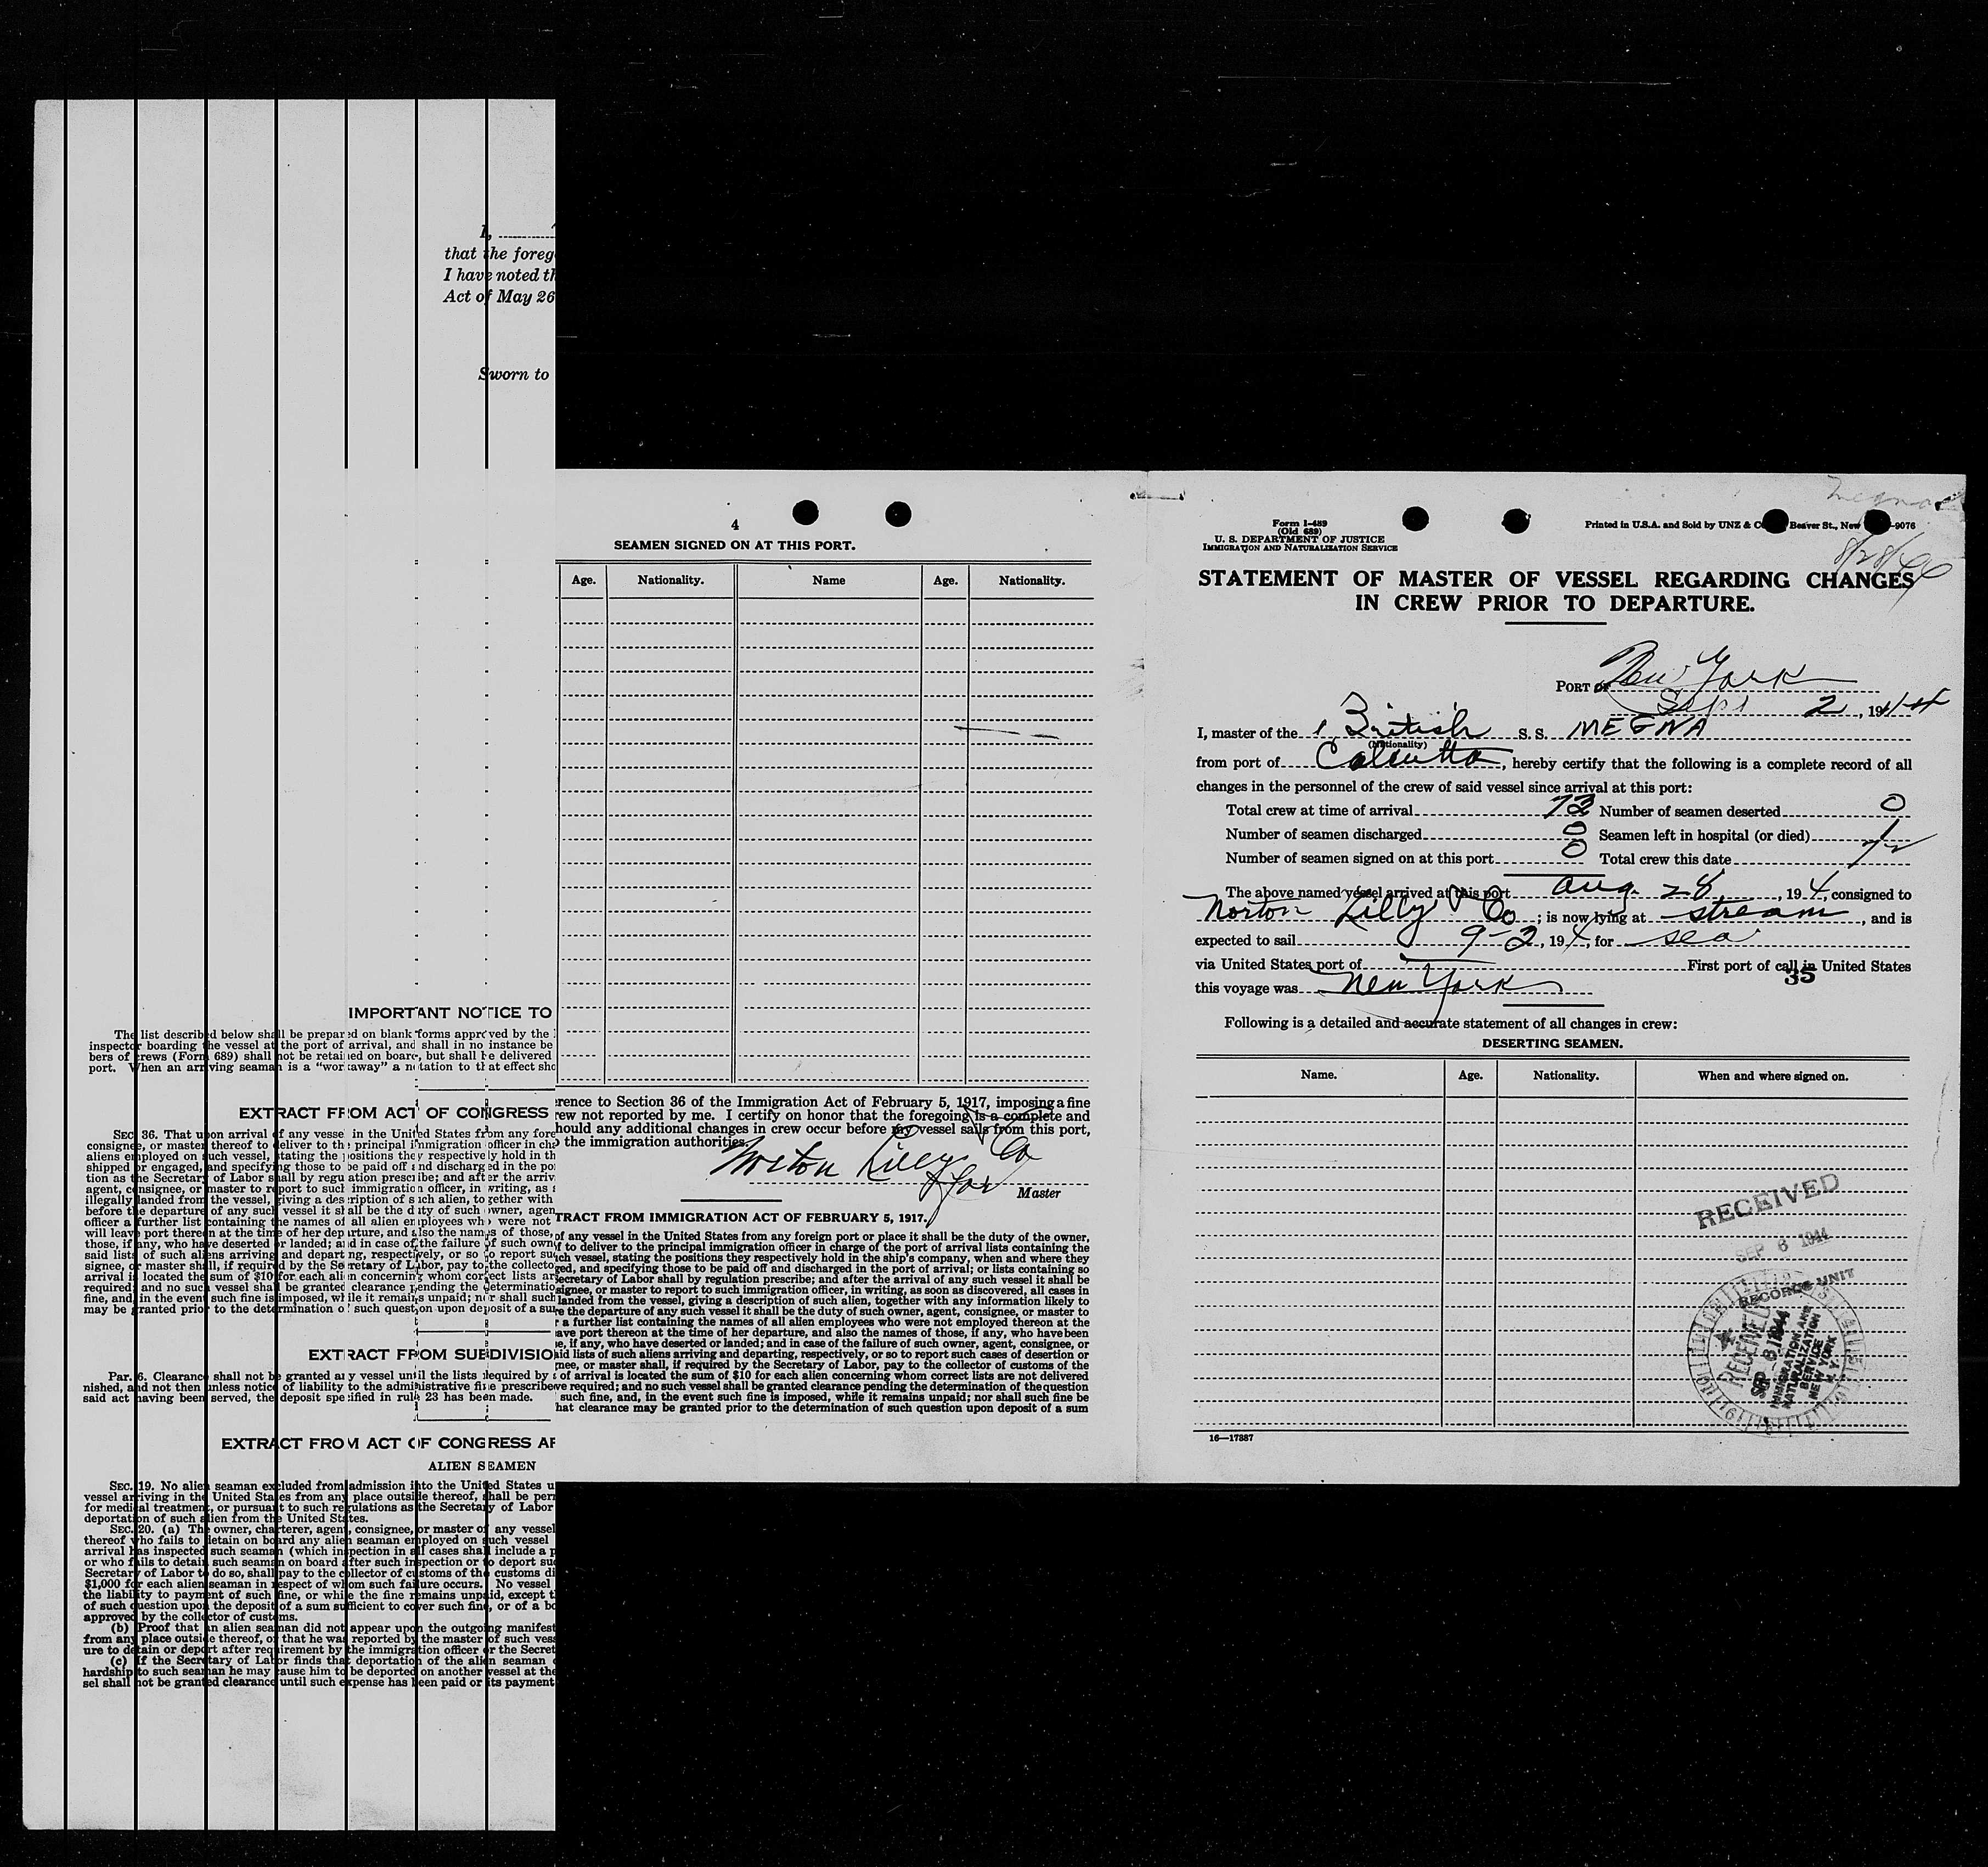 I,
that the foreg
I have noted th
Act of May 26
Sworn to
IMPORTANT NOTICE TO
The list described below shall be prepared on blank forms approved by the
inspector boarding the vessel at the port of arrival, and shall in no instance be
bers of crews (Form 689) shall not be retained on board, but shall be delivered
port. When an arriving seaman is a "workaway" a notation to that effect sho
EXTRACT FROM ACT OF CONGRESS
SEC. 36. That upon arrival of any vessel in the United States from any fore
consignee, or master thereof to deliver to the principal immigration officer in cha
aliens employed on such vessel, stating the positions they respectively hold in th
shipped or engaged, and specifying those to be paid off and discharged in the po
tion as the Secretary of Labor shall by regulation prescribe; and after the arriv
agent, consignee, or master to report to such immigration officer, in writing, as s
illegally landed from the vessel, giving a description of such alien, together with
before the departure of any such vessel it shall be the duty of such owner, agen
officer a further list containing the names of all alien employees who were not
will leave port thereon at the time of her departure, and also the names of those,
those, if any, who have deserted or landed; and in case of the failure of such own
said lists of such aliens arriving and departing, respectively, or so to report su
signee, or master shall, if required by the Secretary of Labor, pay to the collecto
arrival is located the sum of $10 for each alien concerning whom correct lists ar
required; and no such vessel shall be granted clearance pending the determinatio
fine, and, in the event such fine is imposed, while it remains unpaid; nor shall such
may be granted prior to the determination of such question upon deposit of a su
EXTRACT FROM SUBDIVISIO
Par. 6. Clearance shall not be granted any vessel until the lists required by s
nished, and not then unless notice of liability to the administrative fine prescribe
said act having been served, the deposit specified in rule 23 has been made.
EXTRACT FROM ACT OF CONGRESS AP
ALIEN SEAMEN
SEC. 19. No alien seaman excluded from admission into the United States u
vessel arriving in the United States from any place outside thereof, shall be per
for medical treatment, or pursuant to such regulations as the Secretary of Labor
deportation of such alien from the United States.
SEC. 20. (a) The owner, charterer, agent, consignee, or master of any vessel
thereof who fails to detain on board any alien seaman employed on such vessel
arrival has inspected such seaman (which inspection in all cases shall include a p
or who fails to detain such seaman on board after such inspection or to deport su
Secretary of Labor to do so, shall pay to the collector of customs of the customs di
$1,000 for each alien seaman in respect of whom such failure occurs. No vessel
the liability to payment of such fine, or while the fine remains unpaid, except t
of such question upon the deposit of a sum sufficient to cover such fine, or of a bo
approved by the collector of customs.
(b) Proof that an alien seaman did not appear upon the outgoing manifest
from any place outside thereof, or that he was reported by the master of such ves
ure to detain or deport after requirement by the immigration officer or the Secret
(c) If the Secretary of Labor finds that deportation of the alien seaman
hardship to such seaman he may cause him to be deported on another vessel at the
sel shall not be granted clearance until such expense has been paid or its payment
4
SEAMEN SIGNED ON AT THIS PORT.
Age. Nationality. Name Age. Nationality.
erence to Section 36 of the Immigration Act of February 5, 1917, imposing a fine
rew not reported by me. I certify on honor that the foregoing is a complete and
hould any additional changes in crew occur before my vessel sails from this port,
the immigration authorities.
Norton Lilly & Co
for
Master
TRACT FROM IMMIGRATION ACT OF FEBRUARY 5, 1917.
of any vessel in the United States from any foreign port or place it shall be the duty of the owner,
f to deliver to the principal immigration officer in charge of the port of arrival lists containing the
ch vessel, stating the positions they respectively hold in the ship's company, when and where they
ged, and specifying those to be paid off and discharged in the port of arrival; or lists containing so
ecretary of Labor shall by regulation prescribe; and after the arrival of any such vessel it shall be
signee, or master to report to such immigration officer, in writing, as soon as discovered, all cases in
landed from the vessel, giving a description of such alien, together with any information likely to
re the departure of any such vessel it shall be the duty of such owner, agent, consignee, or master to
r a further list containing the names of all alien employees who were not employed thereon at the
ave port thereon at the time of her departure, and also the names of those, if any, who have been
e, if any, who have deserted or landed; and in case of the failure of such owner, agent, consignee, or
aid lists of such aliens arriving and departing, respectively, or so to report such cases of desertion or
nee, or master shall, if required by the Secretary of Labor, pay to the collector of customs of the
of arrival is located the sum of $10 for each alien concerning whom correct lists are not delivered
ve required; and no such vessel shall be granted clearance pending the determination of the question
such fine, and, in the event such fine is imposed, while it remains unpaid; nor shall such fine be
hat clearance may be granted prior to the determination of such question upon deposit of a sum
Megna
8/28/44
Form I-489
(Old 689)
U. S. DEPARTMENT OF JUSTICE
IMMIGRATION AND NATURALIZATION SERVICE
Printed in U.S.A. and Sold by UNZ & C Beaver St., New -9076
STATEMENT OF MASTER OF VESSEL REGARDING CHANGES
IN CREW PRIOR TO DEPARTURE.
PORT OF New York
Sept 2, 1944
I, master of the British S. S. MEGNA
(Nationality)
from port of Calcutta, hereby certify that the following is a complete record of all
changes in the personnel of the crew of said vessel since arrival at this port:
Total crew at time of arrival 73 Number of seamen deserted 0
Number of seamen discharged 0 Seamen left in hospital (or died) 1
Number of seamen signed on at this port 0 Total crew this date 72
The above named vessel arrived at this port Aug. 28, 194, consigned to
Norton Lilly & Co; is now lying at stream, and is
expected to sail 9-2, 194, for sea
via United States port of First port of call in United States
35
this voyage was New York
Following is a detailed and accurate statement of all changes in crew:
DESERTING SEAMEN.
Name. Age. Nationality. When and where signed on.
RECEIVED
SEP 6 1944
RECORDS UNIT
RECEIVED
SEP 8 1944
IMMIGRATION AND
NATURALIZATION
SERVICE
NEW YORK
N. Y.
16—17887